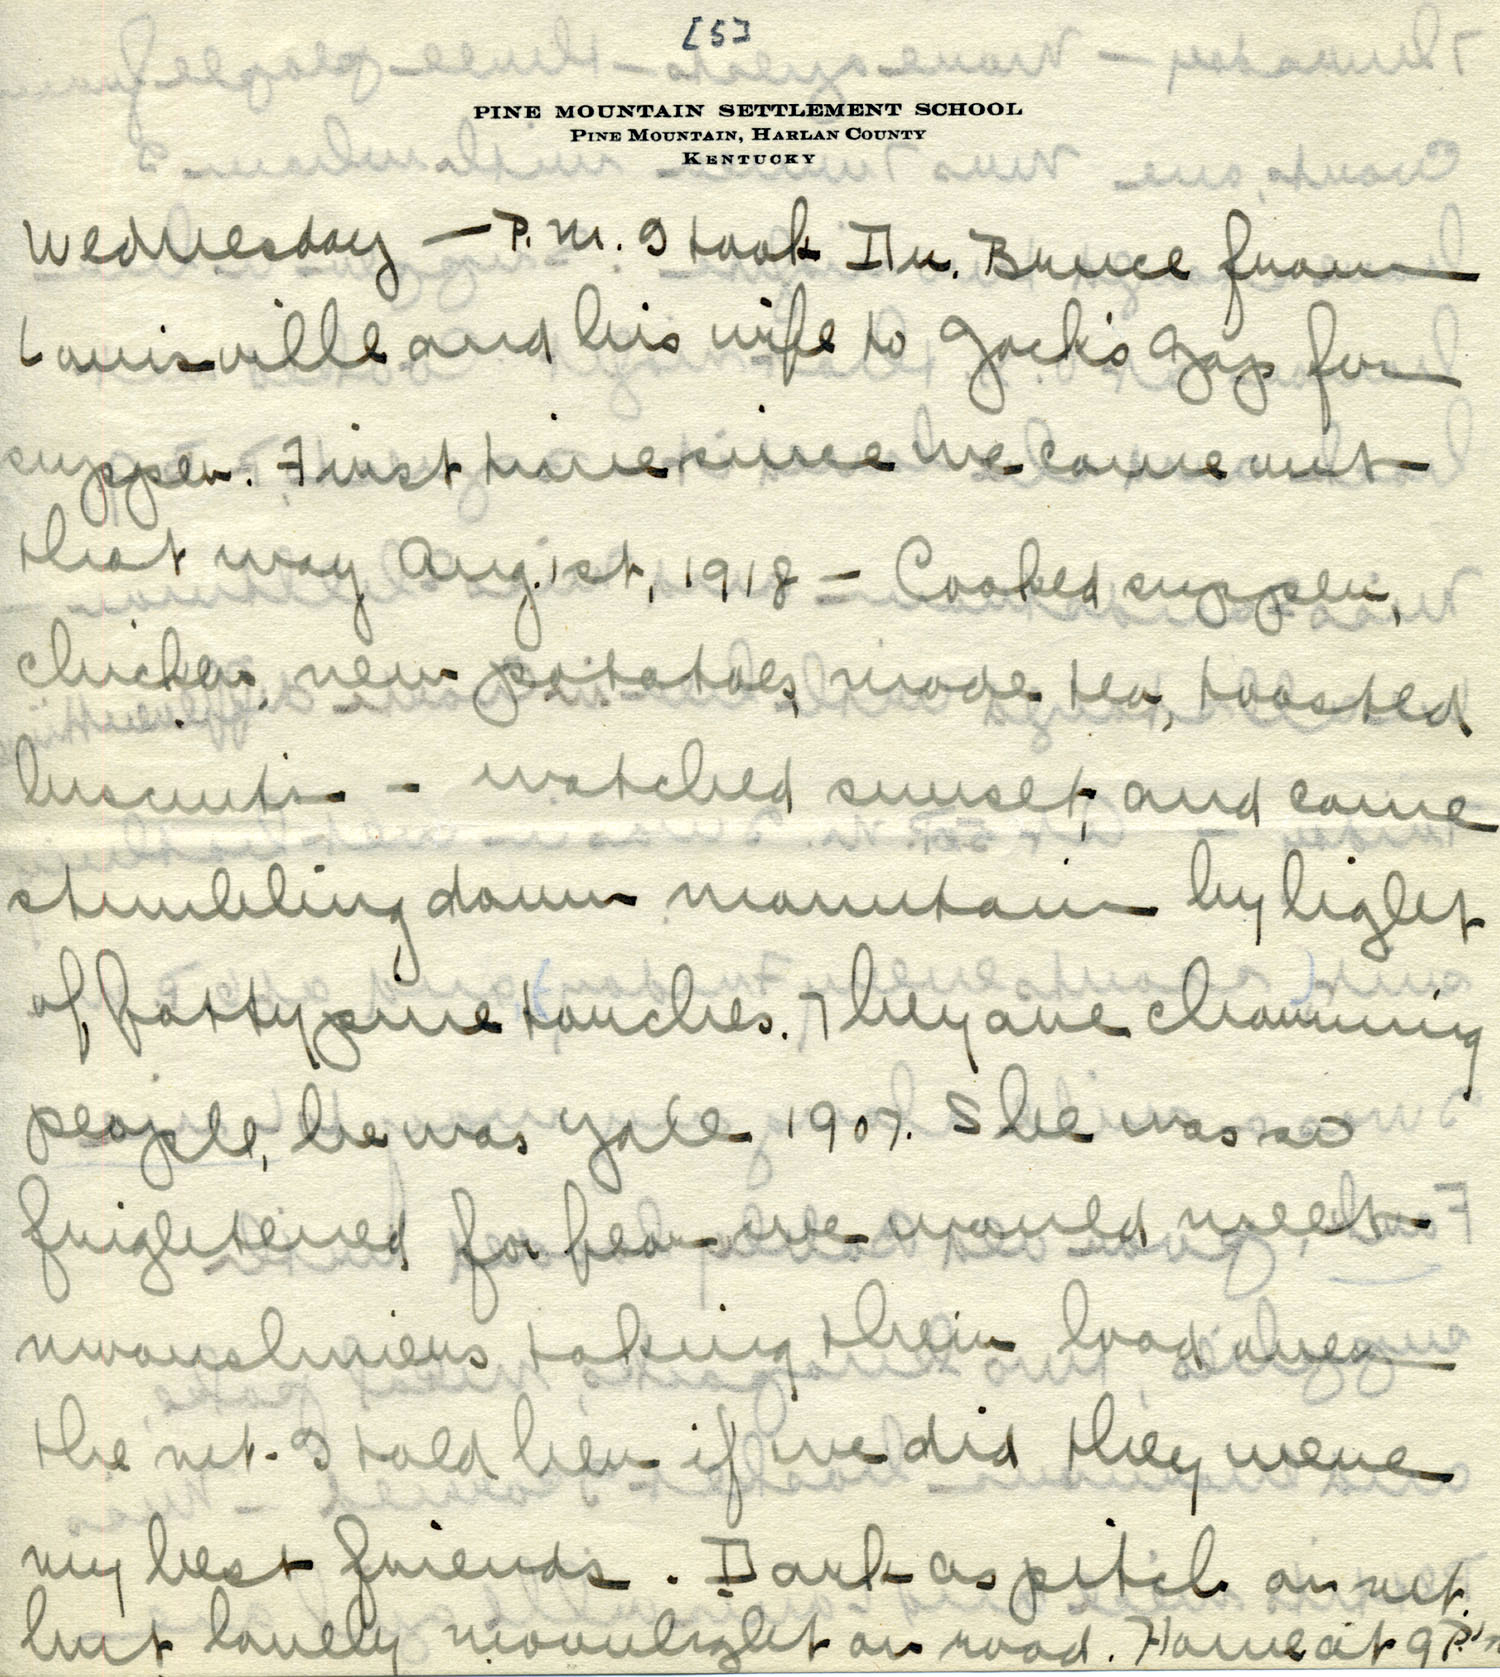 [5]
PINE MOUNTAIN SETTLEMENT SCHOOL
PINE MOUNTAIN, HARLAN COUNTY
KENTUCKY
Wednesday — P.M. I took Dr. Bruce from
Louisville and his wife to Jack's Gap for
supper. First time since we came out
that way Aug. 1st, 1918 — Cooked supper,
chicken, new potatoes, made tea, toasted
biscuits - watched sunset, and came
stumbling down mountain by light
of fatty pine torches. They are charming
people, he was Yale 1907. She was so
frightened for fear we would meet
moonshiners taking their load over
the mt. I told her if we did they were
my best friends. Dark as pitch on mt.
but lovely moonlight on road. Home at 9 P.M